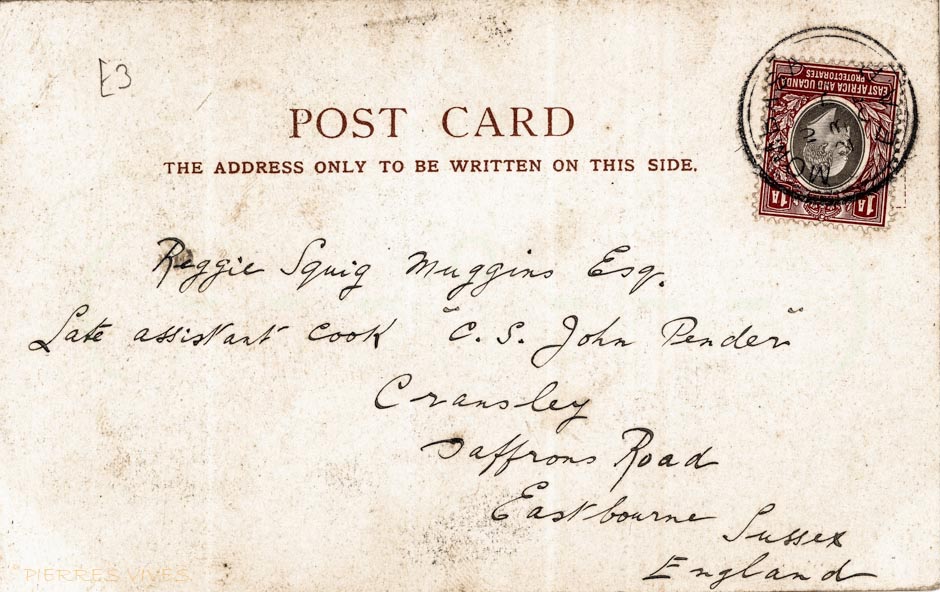 E3
POST CARD
THE ADDRESS ONLY TO BE WRITTEN ON THIS SIDE.
EAST AFRICA AND UGANDA
PROTECTORATES
1A 1A
MOMBASA
Reggie Squig Muggins Esq.
Late assistant cook "C. S. John Pender"
Cransley
Saffrons Road
Eastbourne Sussex
England
PIERRES VIVES